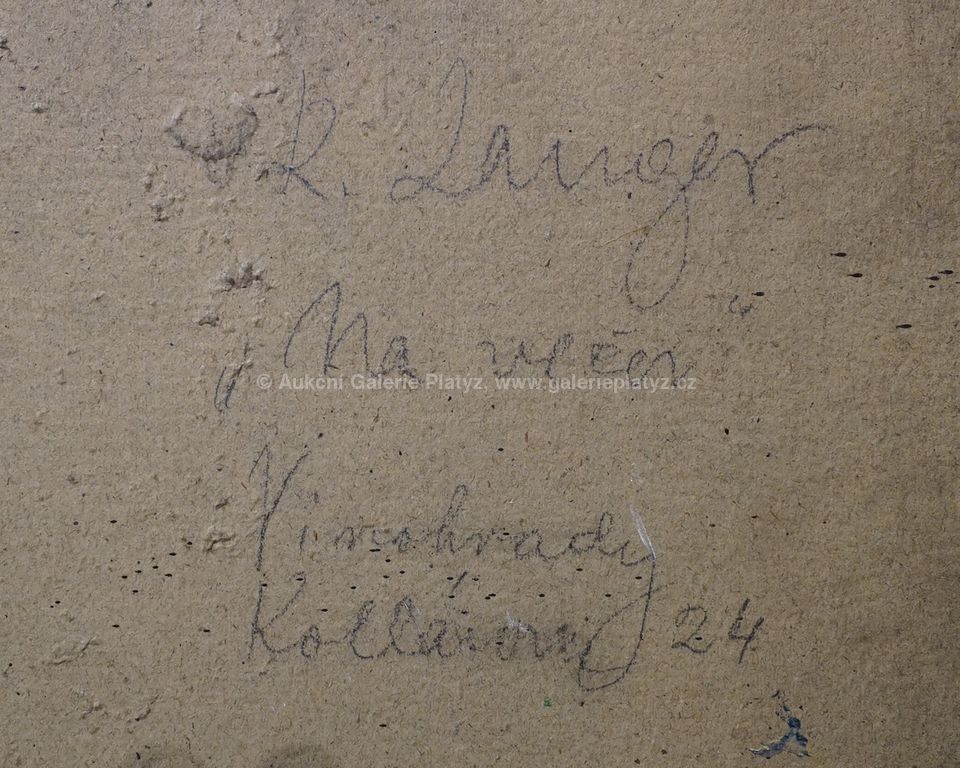 K. Langer
„Na večer“
© Aukční Galerie Platýz, www.galerieplatyz.cz
Vinohrady
Kollárovy 24